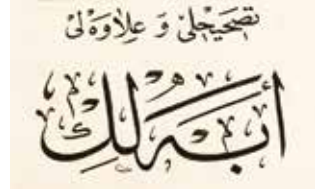 تصحيحلى و علاوه لى
أبه لك